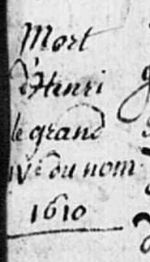 Mort
d'Henri
le grand
IVe du nom
1610